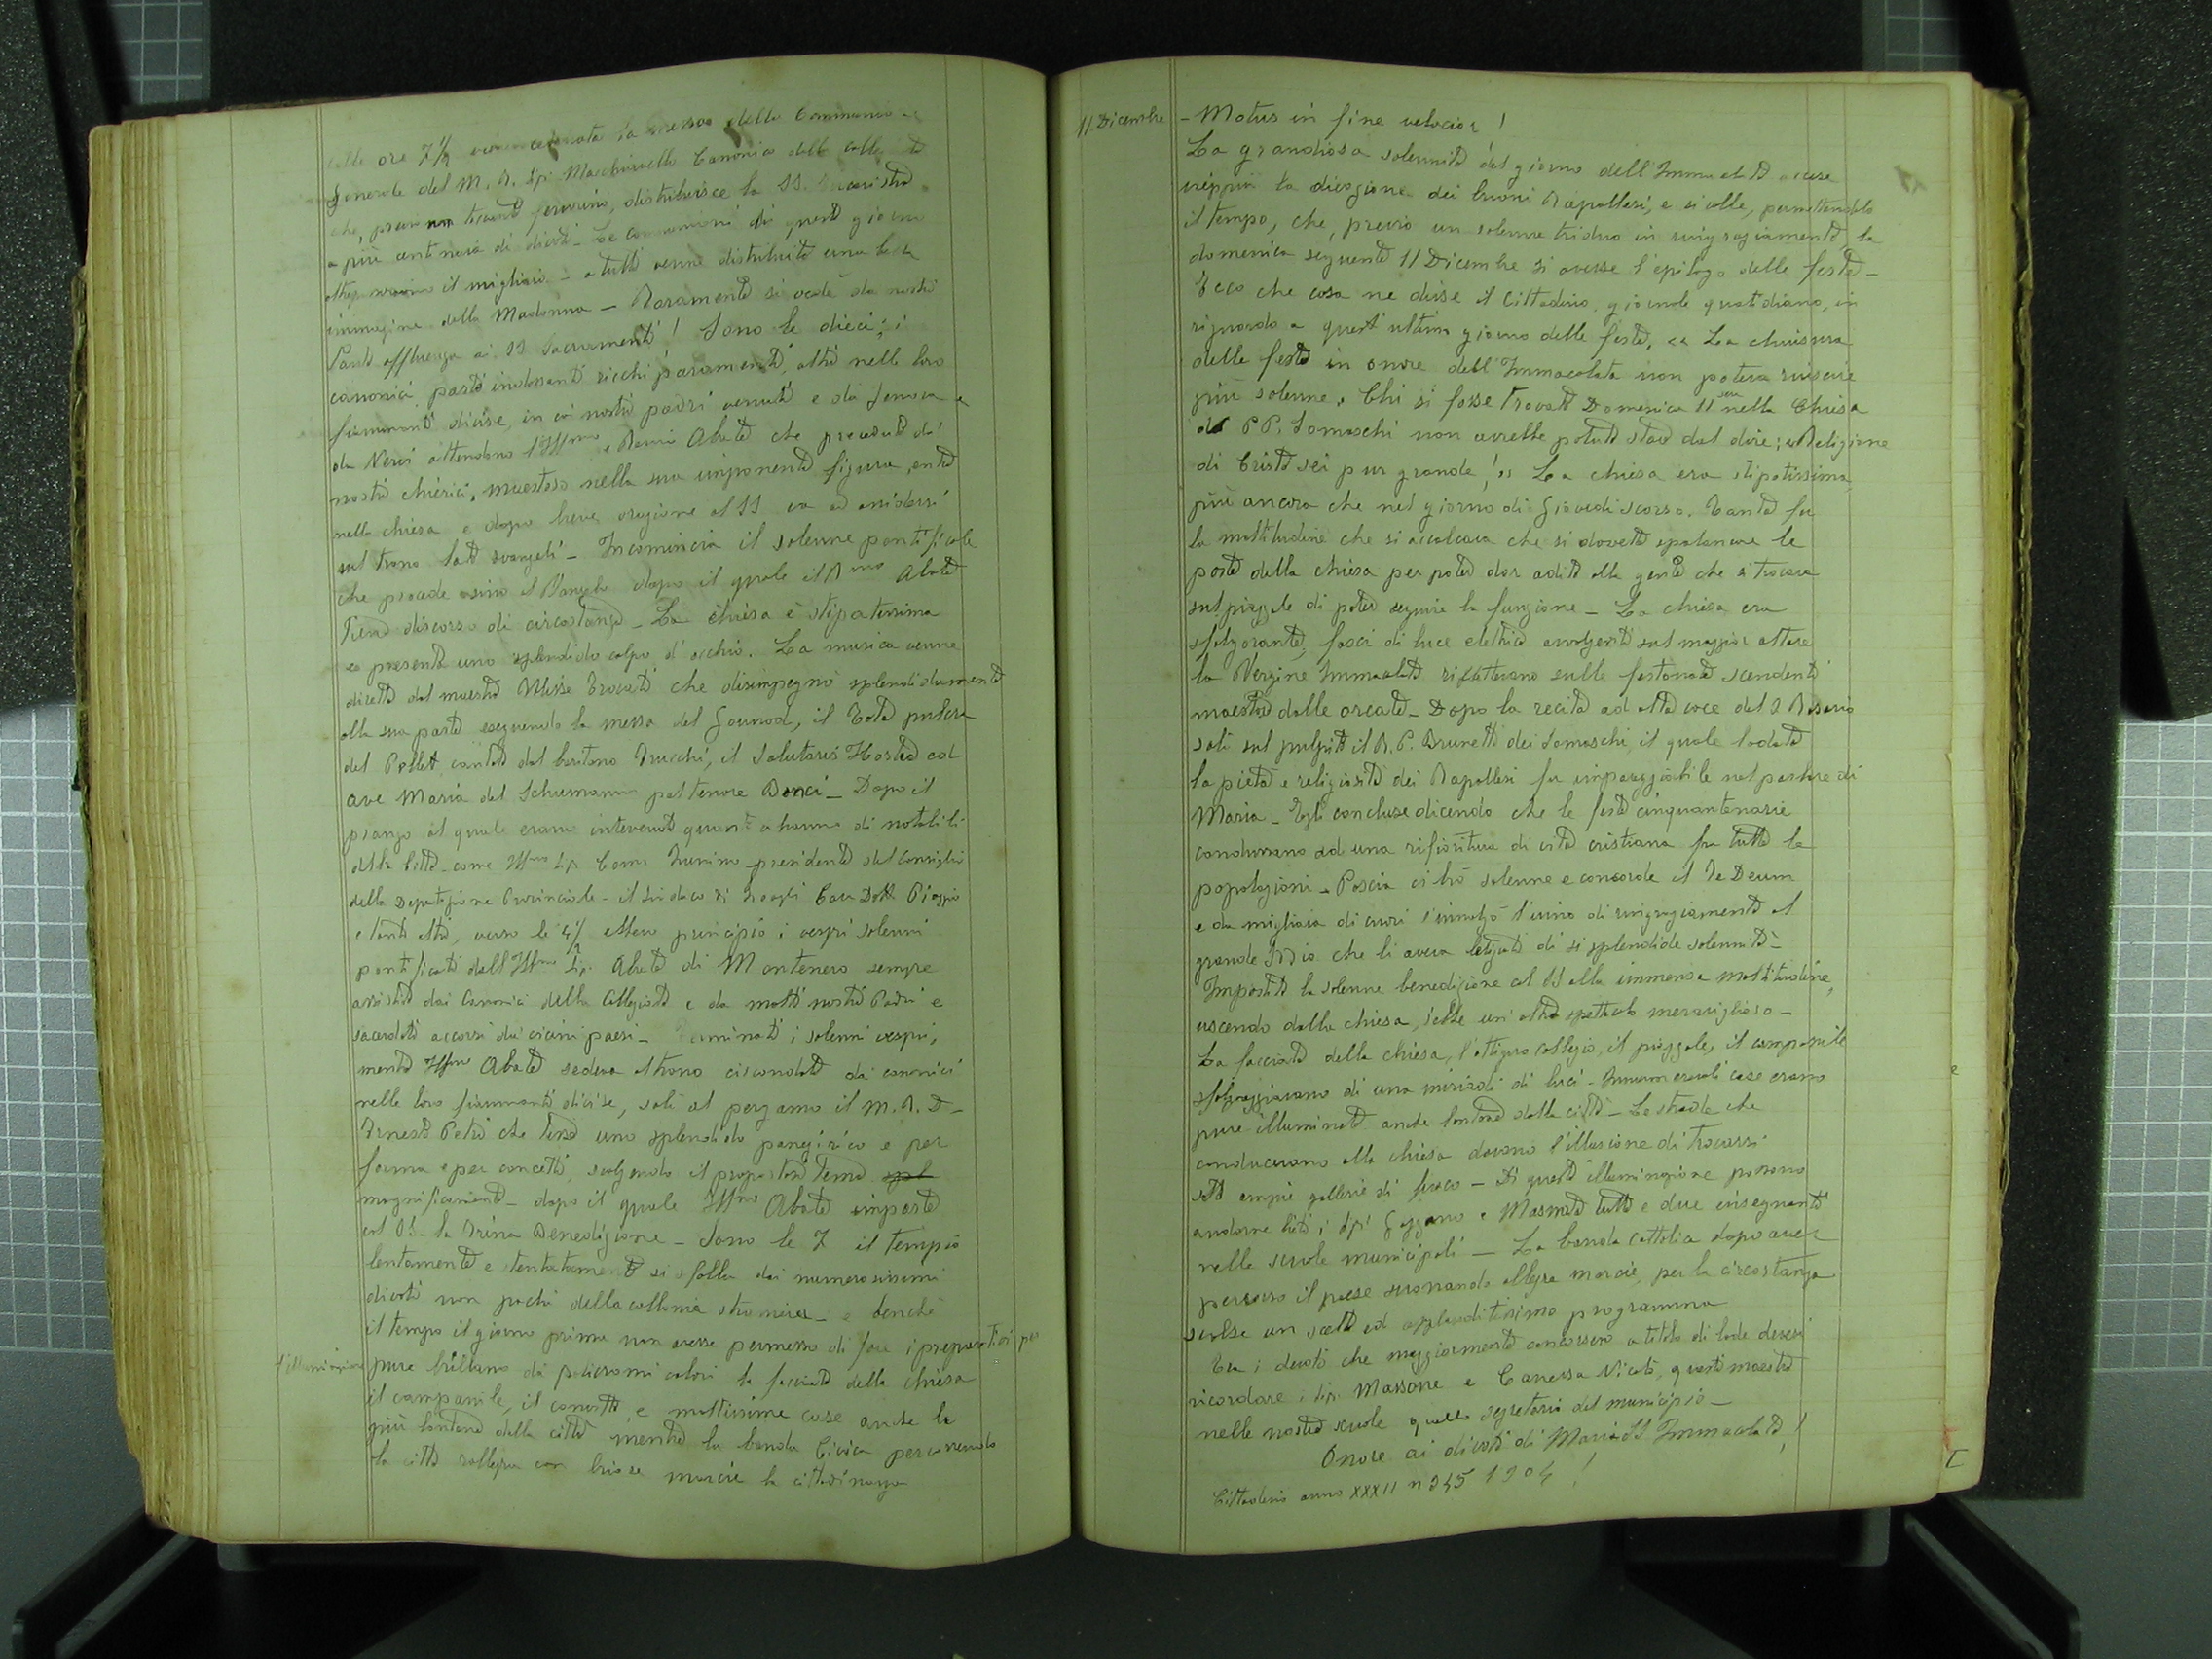 alle ore 7 1/2 viene celebrata la messa della Communione
generale dal M. R. Sig. Macchiavello Canonico della colleg.
che, premesso toccante fervorino, distribuisce la SS. Eucaristia
a più centinaia di divoti - Le communioni di questo giorno
oltrepassarono il migliaio - a tutti venne distribuita una bella
immagine della Madonna - Raramente si vede da nostri
Tanta affluenza ai SS Sacramenti! Sono le dieci; i
canonici parati indossanti ricchi paramenti, altri nelle loro
fiammanti divise, in cui nostri padri venuti e da Genova e
da Nervi attendono l'Illmo e Revmo Abate che preceduto dai
nostri chierici, maestoso nella sua imponente figura, entra
nella chiesa e dopo breve orazione al SS va ad assidersi
sul trono lato evangeli - Incomincia il solenne pontificale
che procede sino al Vangelo dopo il quale il Rmo Abate
Tiene discorso di circostanza - La chiesa è stipatissima
e presenta uno splendido colpo d'occhio. La musica venne
diretta dal maestro Ulisse Trovati che disimpegnò splendidamente
alla sua parte eseguendo la messa del Gounod, il Tota pulcra
del Pollet cantato dal baritono Trucchi, il Salutaris Hostia ed
ave Maria del Schumann pel tenore Bonci - Dopo il
pranzo al quale erano intervenuti quanti a hanno di notabili
della città come Illmo Sig. Comm Zunino presidente del Consiglio
della Deputazione Provinciale - il Sindaco di Zoagli Cav. Dott. Piaggio
e tanti altri, verso le 4 1/2 ebbero principio i vespri solenni
pontificati dall'Illmo Sig. Abate di Montenero sempre
assistito dai Canonici della Collegiata e da molti nostri Padri e
sacerdoti accorsi dai vicini paesi - Terminati i solenni vespri,
mentre Illmo Abate sedeva al trono circondato dai canonici
nelle loro fiammanti divise, salì al pergamo il M. R. D.
Ernesto Petri che tenne uno splendido panegirico e per
forma e per concetti, svolgendo il propostosi tema spl
magnificamente - dopo il quale Illmo Abate imparte
col SS. la Trina Benedizione - Sono le 7 il tempio
lentamente e stentatamente si sfolla dai numerosissimi
divoti non pochi della collonia straniera - e benchè
il tempo il giorno prima non avesse permesso di fare i preparativi per
l'illuminazione pure brillano di policromi colori la facciata della chiesa
il campanile, il convitto e moltissime case anche le
più lontane della città mentre la banda Civica percorrendo
la città rallegra con briose marcie la cittadinanza
11 Dicembre - Motus in fine velocior!
La grandiosa solennità del giorno dell'Immacolata accese
vieppiù la divozione dei buoni Rapallesi, e si volle, permettendolo
il tempo, che, previo un solenne triduo in ringraziamento, la
domenica seguente 11 Dicembre si avesse l'epilogo delle feste -
Ecco che cosa ne disse il Cittadino, giornale quotidiano, in
riguardo a quest'ultimo giorno delle feste. « La chiusura
delle feste in onore dell'Immacolata non poteva riuscire
più solenne. Chi si fosse trovato Domenica 11 sera nella Chiesa
dei PP. Somaschi non avrebbe potuto stare dal dire: « Religione
di Cristo sei pur grande! » La chiesa era stipatissima,
più ancora che nel giorno di Giovedì scorso. Tanta fu
la moltitudine che si accalcava che si dovette spalancare le
porte della chiesa per poter dar adito alla gente che si trovava
sul piazzale di poter seguire la funzione - La chiesa era
sfolgorante; fasci di luce elettrica avvolgenti sul maggior altare
la Vergine Immacolata riflettevano sulle festonate scendenti
maestose dalle arcate - Dopo la recita ad alta voce del S Rosario
salì sul pulpito il R. P. Brunetti dei Somaschi, il quale lodata
la pietà e religiosità dei Rapallesi fu impareggiabile nel parlare di
Maria - Egli concluse dicendo che le feste cinquantenarie
condurranno ad una rifioritura di vita cristiana fra tutte le
popolazioni - Poscia vibrò solenne e concorde il Te Deum
e da migliaia di cuori s'innalzò l'inno di ringraziamento al
grande Iddio che li aveva letiziati di si splendide solennità -
Impartita la solenne benedizione col SS alla immensa moltitudine,
uscendo dalla chiesa, s'ebbe un altro spettacolo meraviglioso -
La facciata della chiesa, l'attiguo collegio, il piazzale, il campanile
sfolgoreggiavano di una miriadi di luci - Innumerevoli case erano
pure illuminate anche lontane dalla città - Le strade che
conducevano alla chiesa davano l'illusione di trovarsi
sotto ampie gallerie di fuoco - Di questa illuminazione possono
andarne lieti i Sigi Gazzano e Masnata tutti e due insegnanti
nelle scuole municipali - La banda cattolica dopo aver
percorso il paese suonando allegre marcie, per la circostanza
svolse un scelto ed applauditissimo programma
Tra i devoti che maggiormente concorsero a titolo di lode devesi
ricordare i Sig. Massone e Canessa Nicolò, questi maestro
nelle nostre scuole quello segretario del municipio -
Onore ai divoti di Maria SS Immacolata!
Cittadino anno XXXII n 345 1904!